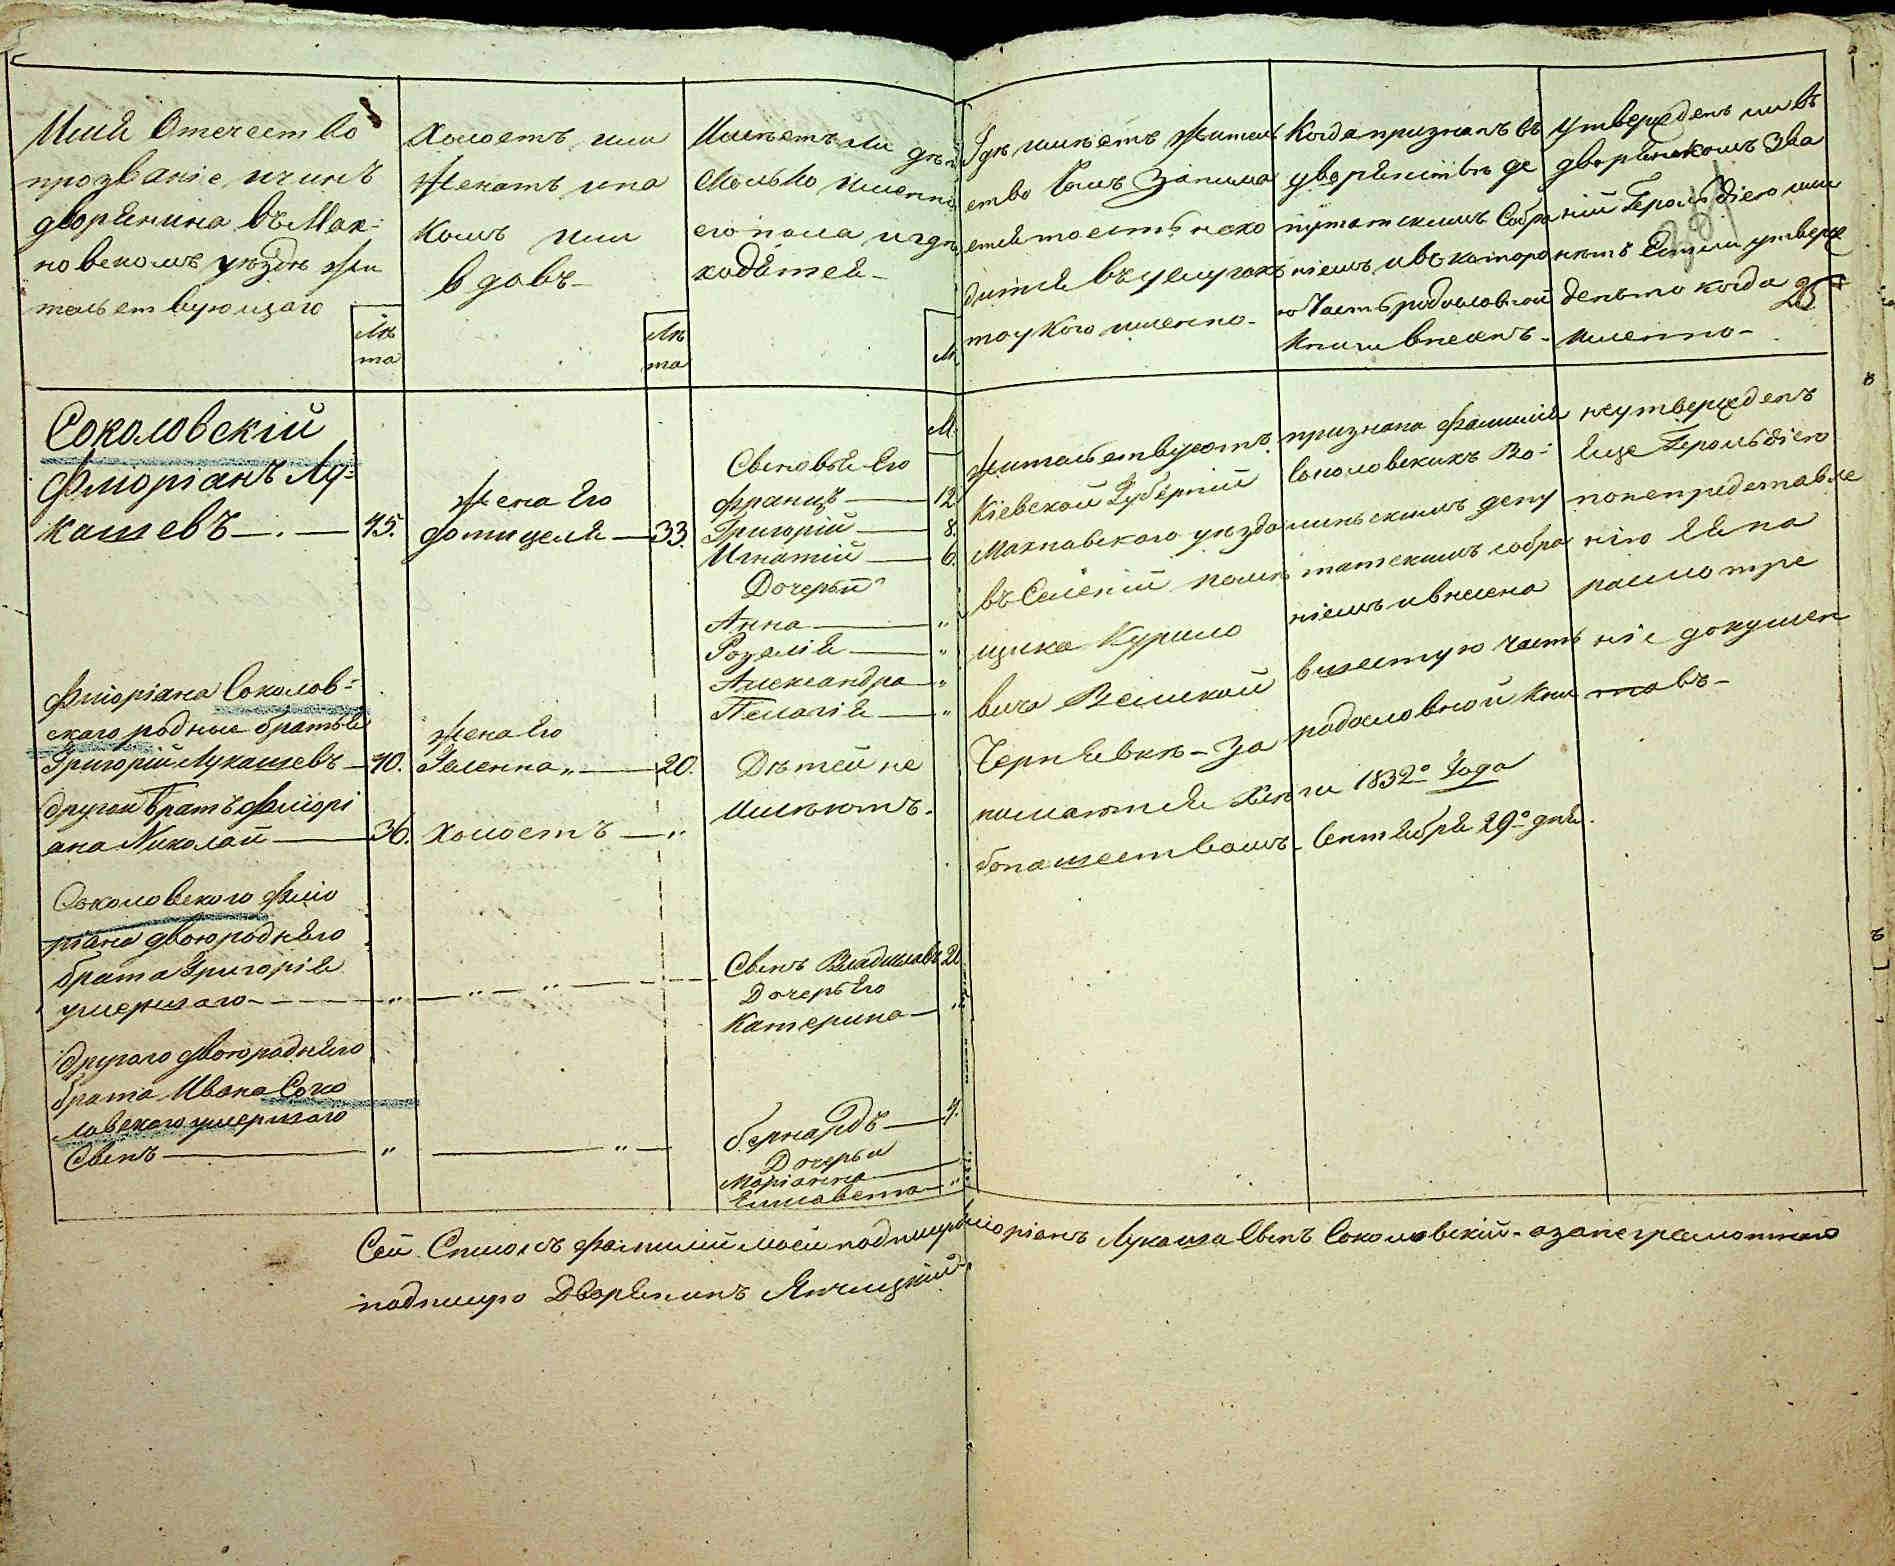 Имя Отечество
прозваніе и чинъ
дворянина въ Мах-
новскомъ уѣздѣ жи
тельствующаго
Лѣ
та
Холостъ или
Женатъ и на
комъ или
вдовъ
Лѣ
та
Имѣетъ ли дѣтей
сколько именно
его пола и гдѣ
ходятся
Лѣ
Гдѣ имѣетъ жител
ство Чемъ занима
ется то есть нахо
дится въ услугахъ
то у кого именно
Когда признанъ въ
дворянствѣ де
путатскимъ Собра
ніемъ и въ которо
ю Часть родословной
книги внесенъ
Утвержденъ ли въ
дворянскомъ зва
ніи Герольдіею или
нѣтъ Если утверж
денъ то когда
именно
25
Соколовскій
Флюріанъ Лу-
кашевъ 45.
Жена Его
Домицеля 33.
М.
Сыновья Его
Францъ 12
Григорій 8.
Игнатій 6.
Дочерьи
Анна "
Розалія "
Александра "
Пелагія "
Жительствуютъ
Кіевской Губерніи
Махновского уѣзда
въ Селеніи помѣ
щика Курило
вича Великой
Чернявкѣ за
нимаются Хлѣ
бопашествомъ
признана фамилія
Соколовскихъ Во-
лынскимъ депу
татскимъ собра
ніемъ и внесена
в шестую часть
родословной кни
ги 1832го Года
Сентября 29го дня.
неутвержденъ
еще Герольдіею
по непредставле
нію ея на
расмотре
ніе докумен
товъ
Флюріана Соколов-
скаго родные братья
Григорій Лукашевъ 40.
Жена Его
Геленна " 20.
Дѣтей не
имѣютъ.
другой братъ Флюрі
ана Николай 36.
Холостъ "
Соколовского Флю
ріана двоюродняго
брата Григорія
умершаго "
Сынъ Владиславъ 20
Дочерь Его
Катерина "
другаго двоюродняго
брата Ивана Соко
ловского умершаго
Сынъ "
бернардъ 4.
Дочерьи
Маріанна
Елисавета "
Сей Списокъ фамиліи моей подпи Флюріанъ Лукаша Сынъ Соколовскій а за неграмотного
подпишуро Дворянинъ